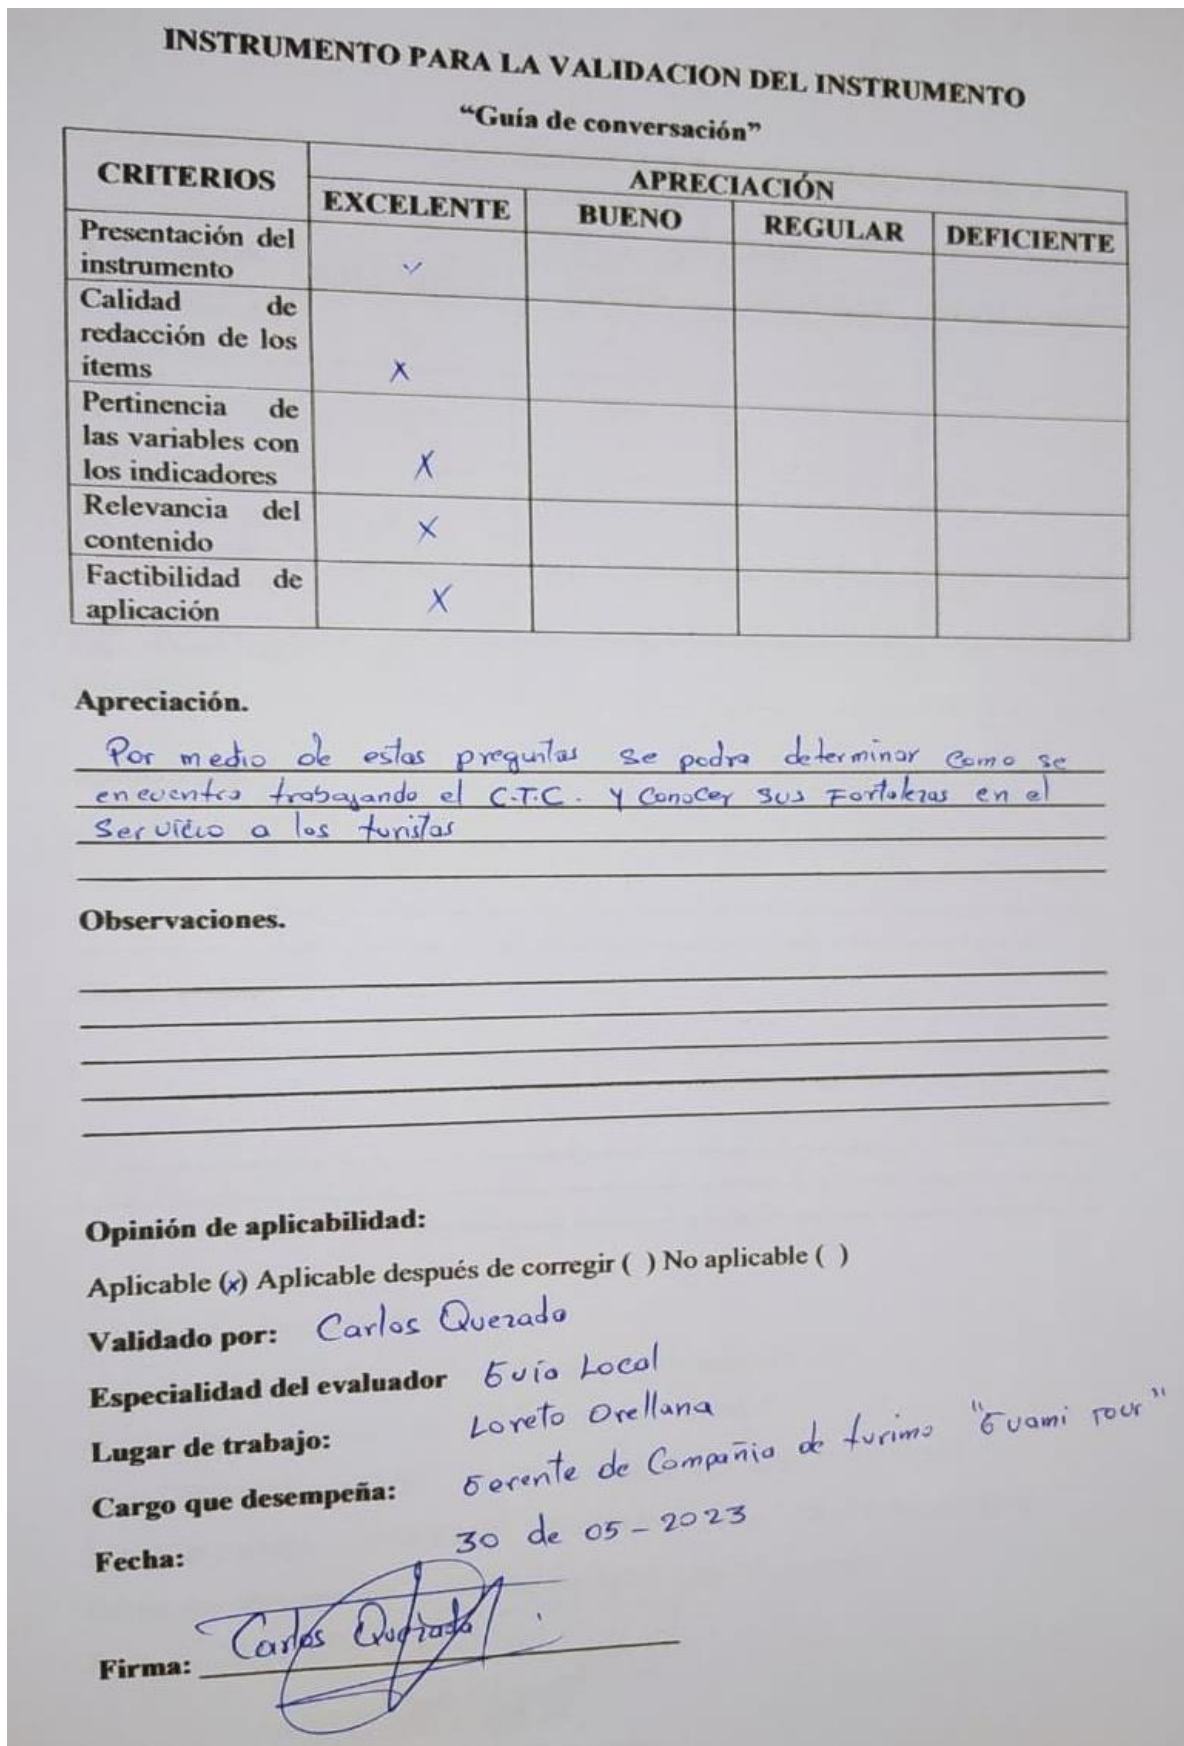 INSTRUMENTO PARA LA VALIDACION DEL INSTRUMENTO
“Guía de conversación”
CRITERIOS
APRECIACIÓN
EXCELENTE BUENO REGULAR DEFICIENTE
Presentación del
instrumento ✓
Calidad de
redacción de los
ítems X
Pertinencia de
las variables con
los indicadores X
Relevancia del
contenido X
Factibilidad de
aplicación X
Apreciación.
Por medio de estas preguntas se podra determinar como se
encuentra trabajando el C.T.C. y Conocer sus Fortalezas en el
Servicio a los turistas
Observaciones.
Opinión de aplicabilidad:
Aplicable (x) Aplicable después de corregir ( ) No aplicable ( )
Validado por: Carlos Quezada
Especialidad del evaluador Guía Local
Lugar de trabajo: Loreto Orellana
Cargo que desempeña: Gerente de Compañia de turimo "Guami Tour"
Fecha: 30 de 05-2023
Firma: Carlos Quezada